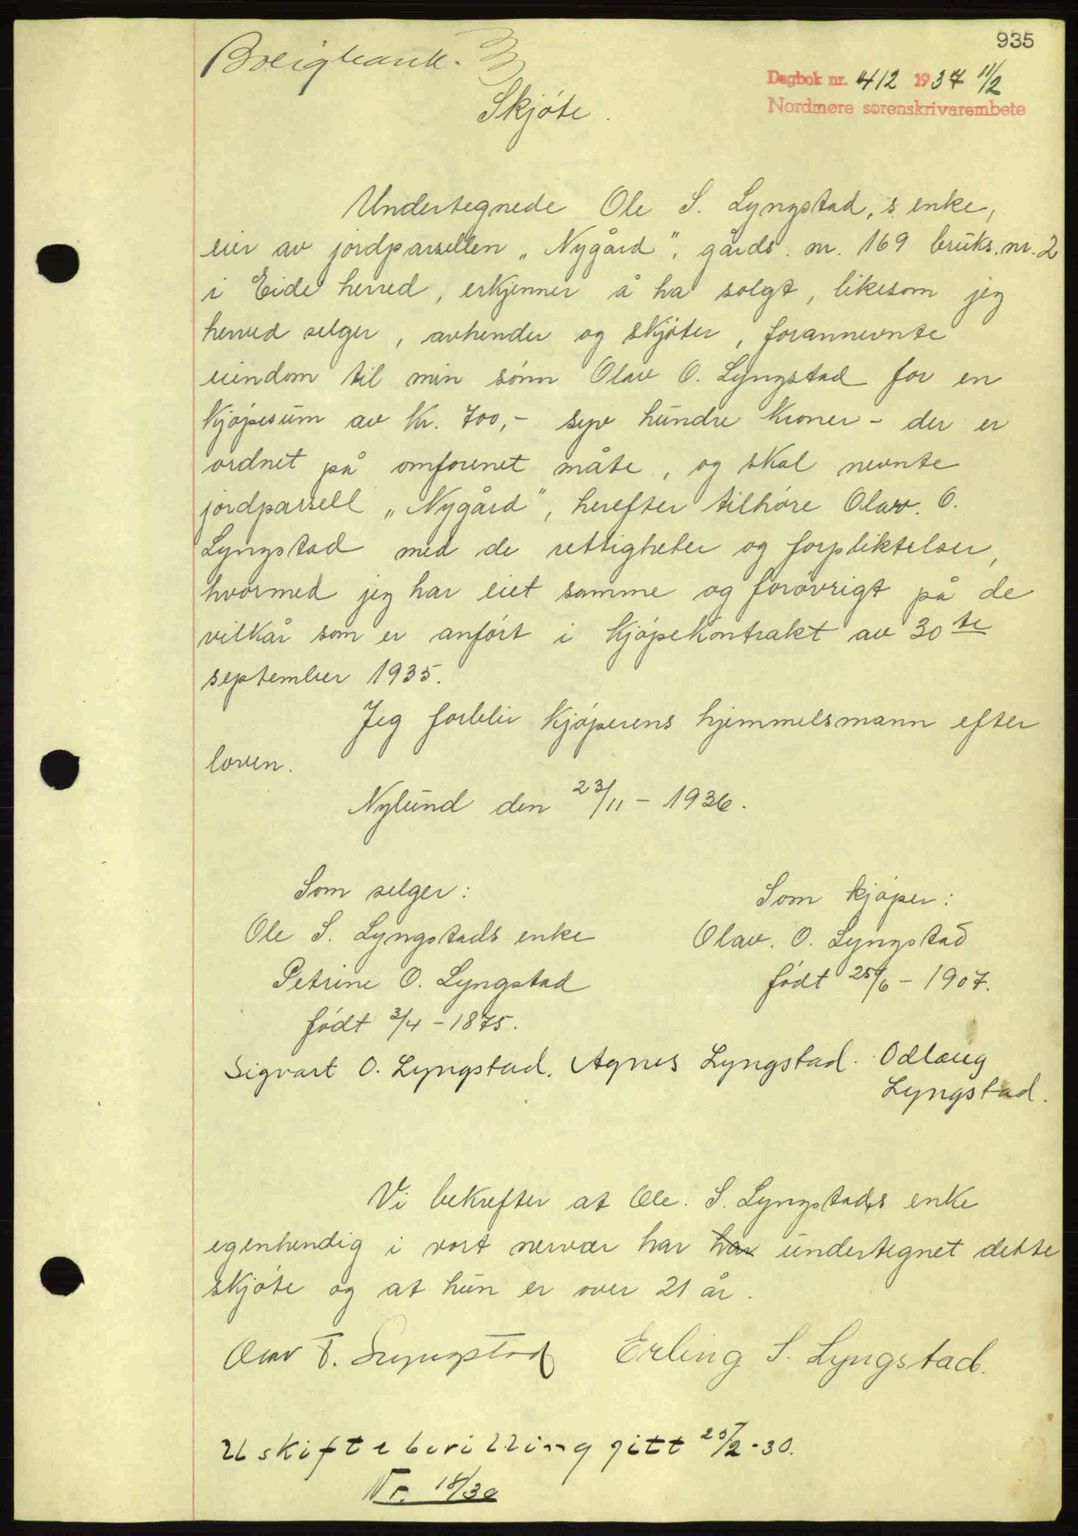 935
Boligbank.
Dagbok nr. 412 1937 11/2
Nordmøre sorenskrivarembete
Skjøte.
Undertegnede Ole S. Lyngstad,s enke,
eier av jordparsellen „Nygård", gårds. nr. 169 bruks.nr. 2
i Eide herred, erkjenner å ha solgt, likesom jeg
herved selger, avhender og skjøter, forannevnte
eiendom til min sønn Olav O. Lyngstad for en
kjøpesum av Kr. 700,- syv hundre kroner - der er
ordnet på omforenet måte, og skal nevnte
jordparsell „Nygård", herefter tilhøre Olav. O.
Lyngstad med de rettigheter og forpliktelser,
hvormed jeg har eiet samme og forøvrigt på de
vilkår som er anført i kjøpekontrakt av 30te
september 1935.
Jeg forblir kjøperens hjemmelsmann efter
loven.
Nylund den 23/11 - 1936.
Som selger:
Ole S. Lyngstads enke
Petrine O. Lyngstad
født 3/4 - 1875.
Som kjøper:
Olav. O. Lyngstad
født 25/6 - 1907.
Sigvart O. Lyngstad. Agnes Lyngstad. Odlaug
Lyngstad.
Vi bekrefter at Ole. S. Lyngstads enke
egenhendig i vort nervær har har undertegnet dette
skjøte og at hun er over 21 år.
Olav T. Lyngstad Erling S. Lyngstad.
Uskiftebevilling gitt 25/2-30.
Nr. 18/30